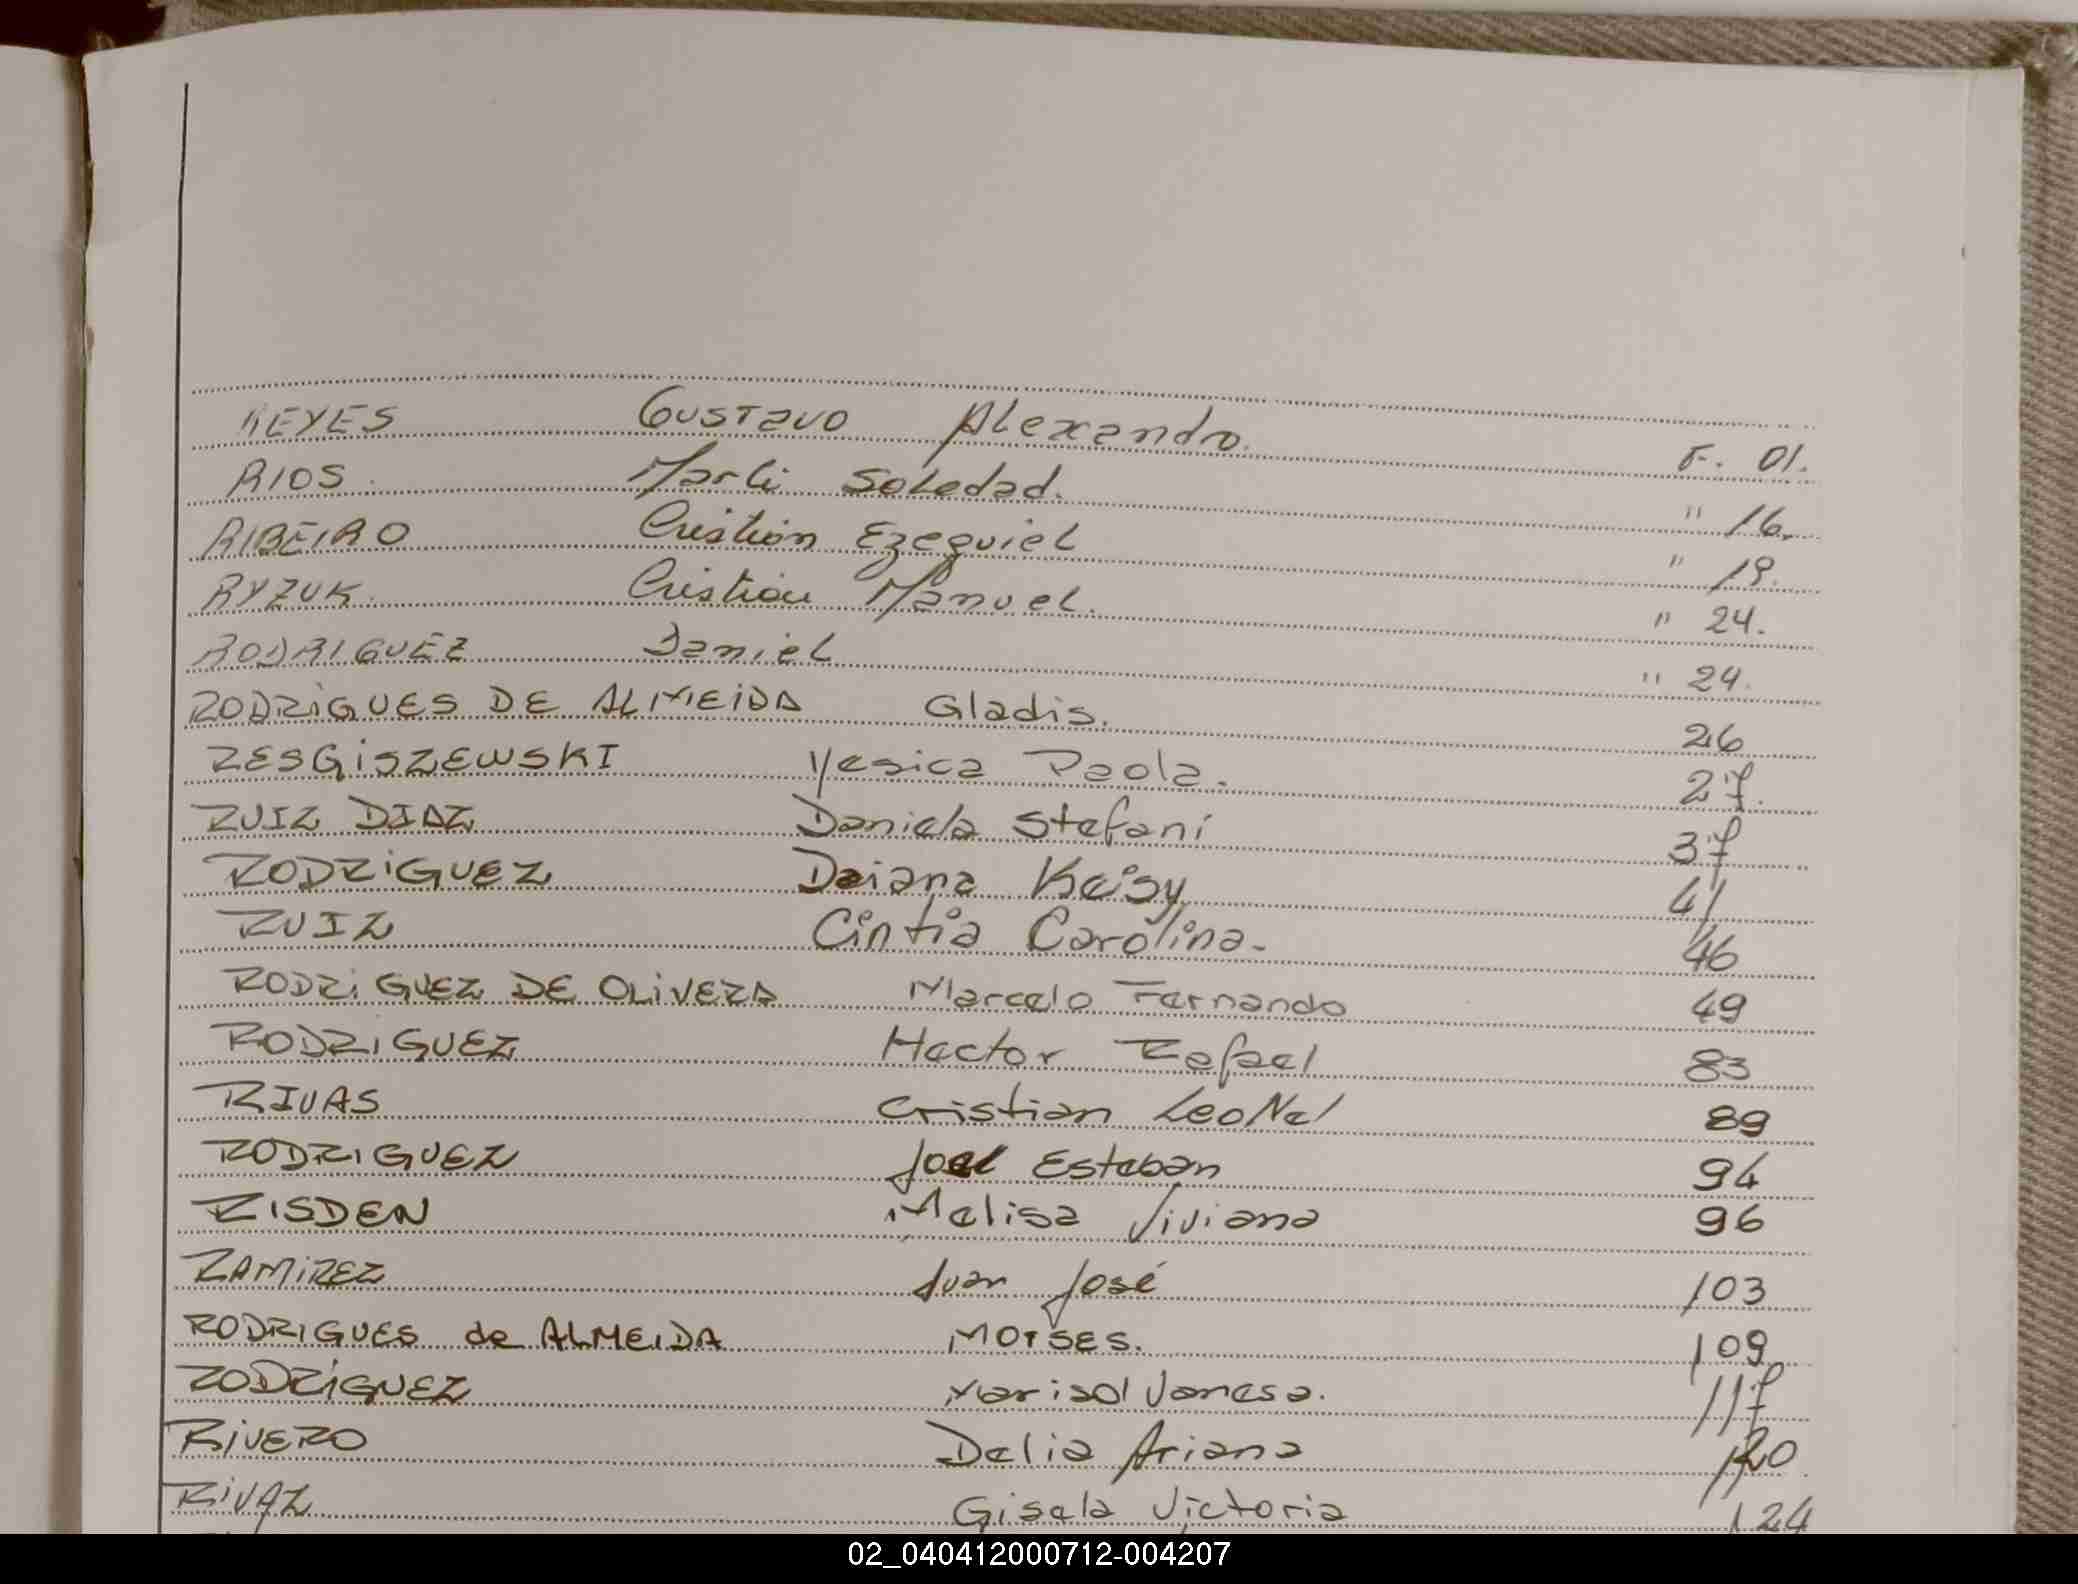 REYES Gustavo Alexandro. F. 01.
RIOS. Marli Soledad. " 16.
RIBEIRO Cristian Ezequiel " 19.
RYZUK. Cristian Manuel. " 24.
RODRIGUEZ Daniel " 24.
RODRiGUES DE ALMEiDA Gladis. 26
RESGiSZEWSKI Yesica Paola. 27.
RUIZ DIAZ Daniela Stefani 37
RODRiGUEZ Daiana Keisy 41
RUIZ Cintia Carolina. 46
RODRiGUEZ DE OLiVERA Marcelo Fernando 49
RODRIGUEZ Hector Rafael 83
RIVAS Cristian LeoNel 89
RODRIGUEZ Joel Esteban 94
RISDEN Melisa Viviana 96
RAMiREZ Juan José 103
RODRIGUES de ALMEIDA MOISES. 109
RODRiGUEZ Marisol Vanesa. 117
RiVERO Delia Ariana 120
RiVAZ Gisela Victoria 124
02_040412000712-004207